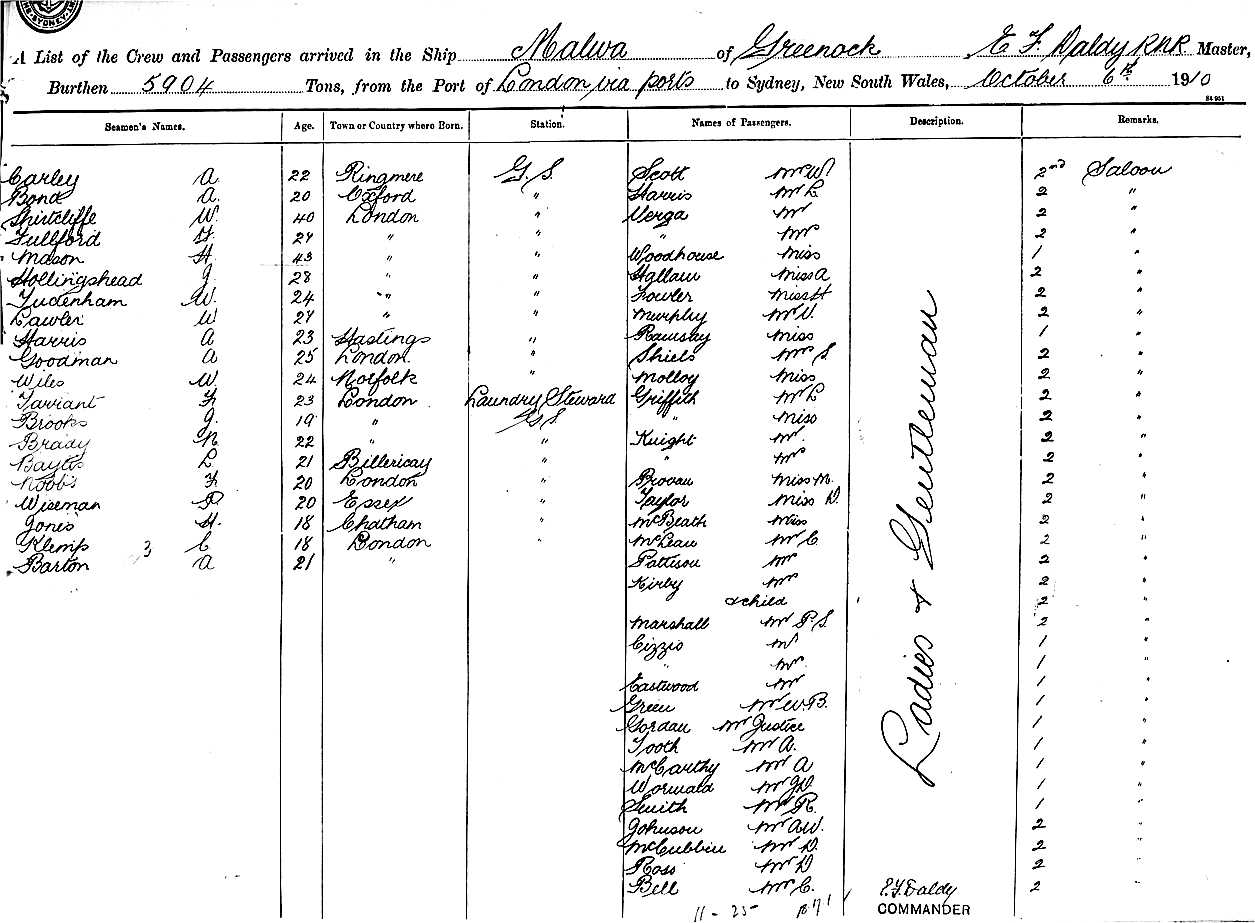 SYDNEY
A List of the Crew and Passengers arrived in the Ship Malwa of Greenock E F Daldy RNR Master,
Burthen 5904 Tons, from the Port of London via ports to Sydney, New South Wales, October 6th 1910
Seamen's Names. Age. Town or Country where Born. Station. Names of Passengers. Description. Remarks.
Carley A 22 Ringmere G.S. Scott Mr W 2nd Saloon
Bond A. 20 Oxford " Harris Mr L 2 "
Shirtcliffe W. 40 London " Verga Mr 2 "
Fullford F. 27 " " " Mrs 2 "
Mason H. 43 " " Woodhouse Miss 1 "
Hollingshead J. 28 " " Hallam Miss A 2 "
Tudenham W. 24 " " Fowler Miss H 2 "
Lawler W 27 " " Murphy Mr V. 2 "
Harris A 23 Hastings " Ramsay Miss 1 "
Goodman A 25 London. " Shiels Mrs S 2 "
Wiles W. 24 Norfolk " Molloy Miss 2 "
Tarrant F. 23 London Laundry Steward Griffith Mr L 2 "
Brooks J. 19 " G.S " Miss 2 "
Brady N. 22 " " Knight Mr. 2 "
L 21 Billericay " " Mrs 2 "
Nobbs F. 20 London " Miss M. 2 "
Wiseman R 20 Essex " Taylor Miss D. 2 "
Jones H. 18 Chatham " McBeath Miss 2 "
Klemp 3 C 18 London " McLean Mr C 2 "
Barton A 21 " Pattison Mr 2 "
Kirby Mrs 2 "
& child 2 "
Marshall Mr P.S 2 "
Cizzio Mr 1 "
" Mrs. 1 "
Eastwood Mr 1 "
Green Mr W.B. 1 "
Gordan Mr Justice 1 "
Tooth Mr A. 1 "
McCarthy Mr A 1 "
Worwald Mr 1 "
Smith Mr R. 1 "
Johnson Mr A.W. 2 "
McCubbin Mr D. 2 "
Ross Mr D 2 "
Bell Mr C. 2 "
Ladies & Gentleman
E.F. Daldy
COMMANDER
11 - 25 -